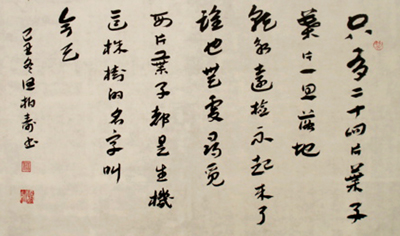 只有二十四片葉子
葉片一旦落地
就永遠撿不起來了
誰也無處尋覓
片葉子都是生機
這株樹的名字叫
今天
己丑冬柏壽书